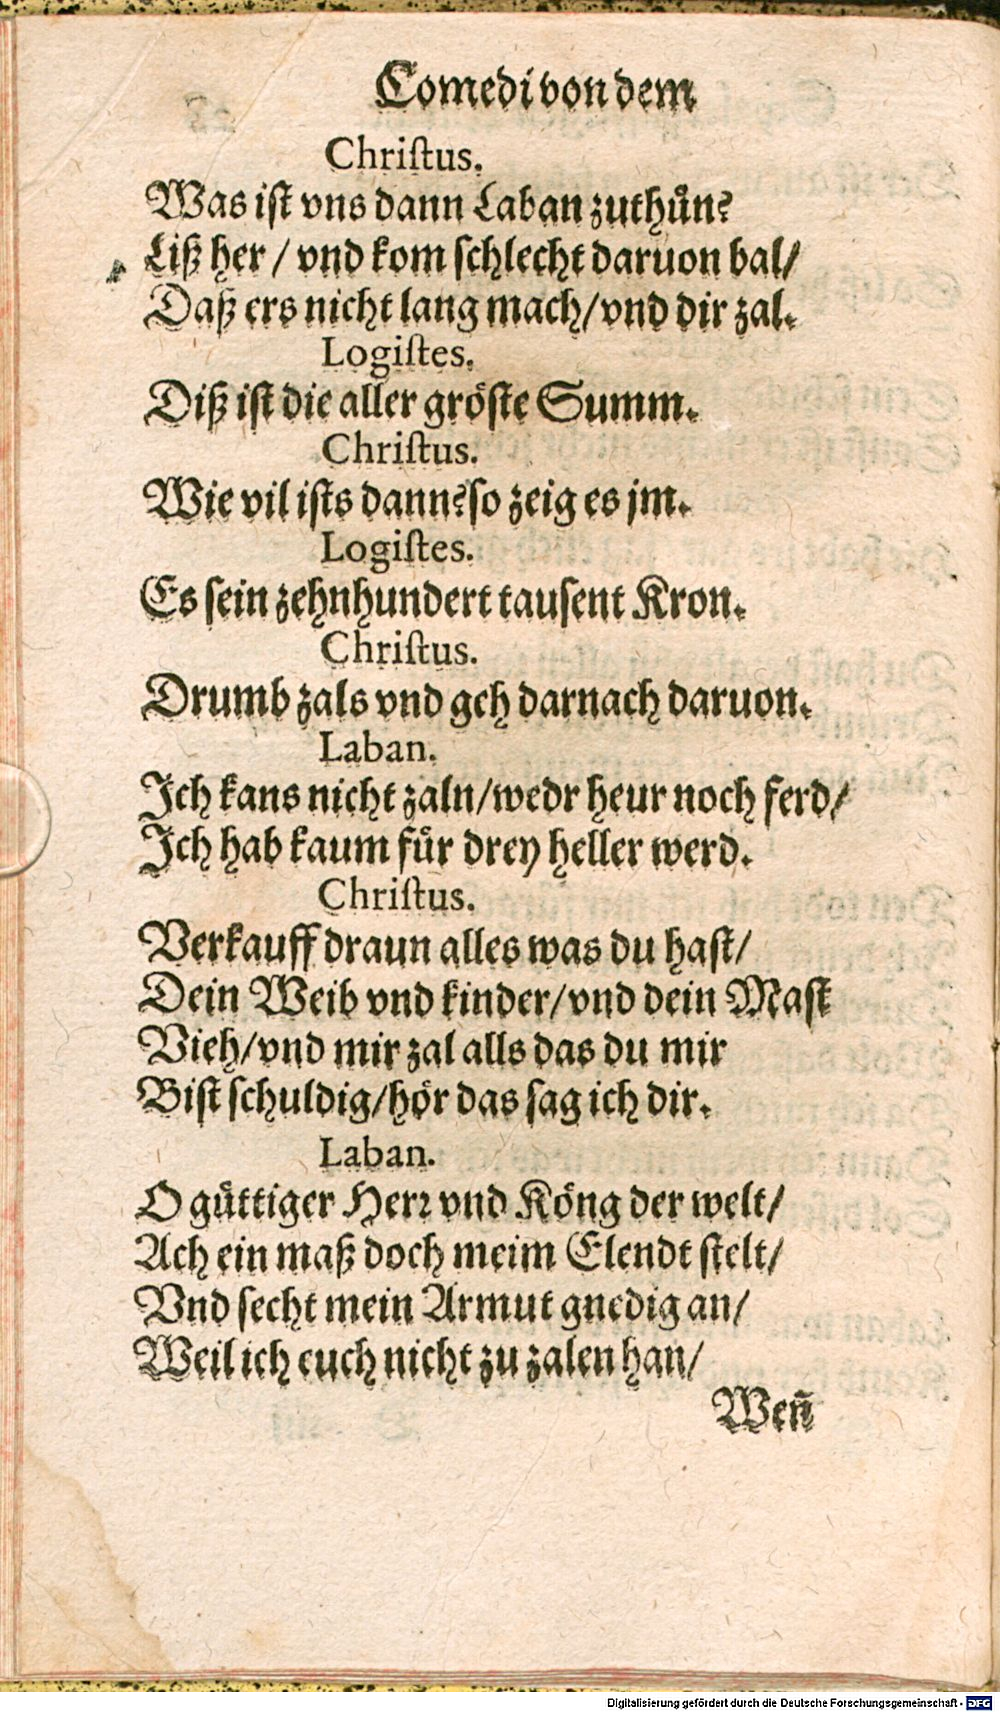 Comedi von dem
Chriſtus.
Was iſt vns dann Laban zuthuͤn?
Liß her / vnd kom ſchlecht daruon bal/
Daß ers nicht lang mach/vnd dir zal.
Logiſtes.
Diß iſt die aller groͤſte Summ.
Chriſtus.
Wie vil iſts dann?ſo zeig es jm.
Logiſtes.
Es ſein zehnhundert tauſent Kron.
Chriſtus.
Drumb zals vnd geh darnach daruon.
Laban.
Ich kans nicht zaln/wedr heur noch ferd/
Ich hab kaum fuͤr drey heller werd.
Chriſtus.
Verkauff draun alles was du haſt/
Dein Weib vnd kinder/vnd dein Maſt
Vieh/vnd mir zal alls das du mir
Biſt ſchuldig/hoͤr das ſag ich dir.
Laban.
O guͤttiger Herꝛ vnd Koͤng der welt/
Ach ein maß doch meim Elendt ſtelt/
Vnd ſecht mein Armut gnedig an/
Weil ich euch nicht zu zalen han/
Weñ
Digitalisierung gefördert durch die Deutsche Forschungsgemeinschaft - DFG